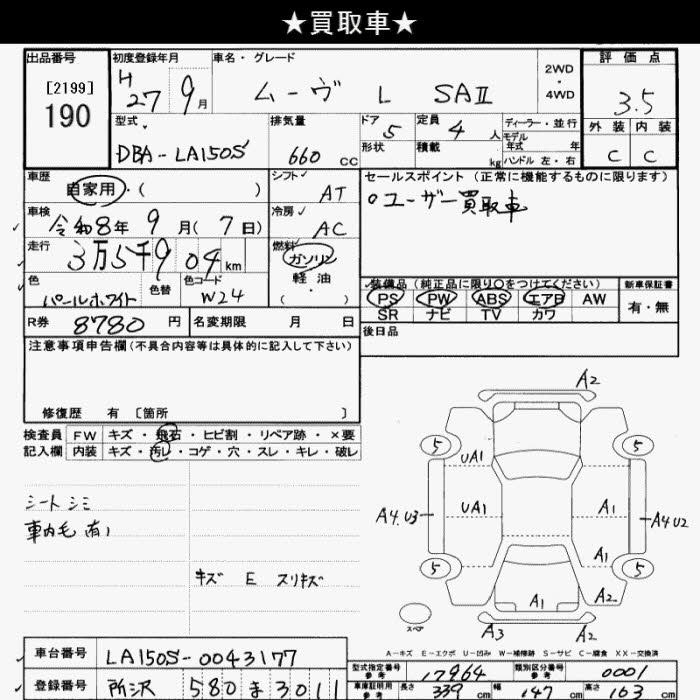 ★買取車★
出品番号
[2199]
190
初度登録年月
H 27 9月
車名・グレード
ムーヴ L SAⅡ
2WD
・
4WD
評価点
3.5
外装 内装
C C
型式
DBA-LA150S
排気量
660 cc
ドア 5
形状
定員 4 人
積載 kg
ディーラー・並行
モデル
年式 年
ハンドル 左・右
車歴
自家用・( )
シフト
AT
車検
令和8年 9月(7日)
冷房
AC
走行
3万5千904km
燃料
ガソリン
軽油
・
( )
色
パールホワイト
色替
色コード
W24
R券 8780 円
名変期限 月 日
セールスポイント(正常に機能するものに限ります)
○ユーザー買取車
装備品(純正品に限り○をつけてください)
PS PW ABS エアB AW
SR ナビ TV カワ
新車保証書
有・無
後日品
注意事項申告欄(不具合内容等は具体的に記入して下さい)
修復歴 有 〔箇所 〕
検査員
記入欄
FW キズ・飛石・ヒビ割・リペア跡・×要
内装 キズ・汚レ・コゲ・穴・スレ・キレ・破レ
シートシミ
車内毛有り
キズ E スリキズ
A2
5 5
UA1
A4.U3 UA1 A1 A4U2
A1
5 5
A1 A2
A3 A2
スペア
A-キズ E-エクボ U-凹み W-補修跡 S-サビ C-腐食 XX-交換済
車台番号 LA150S-0043177
登録番号 所沢 580 ま 3011
型式指定番号
参考
17964
類別区分番号
参考
0001
車庫証明用
参考
長さ 339 cm 幅 147 cm 高さ 163 cm